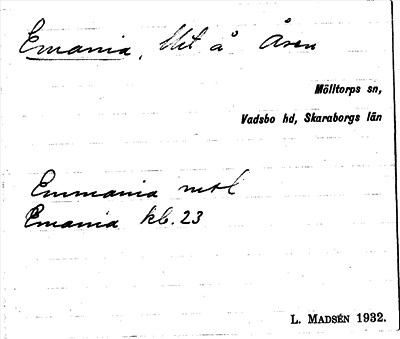 Emania, Ut å Åsen
Mölltorps sn,
Vadsbo hd, Skaraborgs län
Emmania mtl
Emania kb. 23
L. MADSÉN 1932.